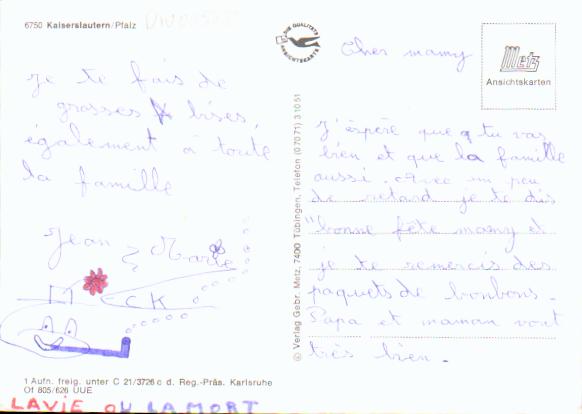 6750 Kaiserslautern/Pfalz
DIE QUALITÄTS
ANSICHTSKARTE
Metz
Ansichtskarten
Cher mamy
J'éspère que tu vas
bien et que la famille
aussi. Avec un peu
de retard je te dis
"bonne fête mamy et
je te remercis des
paquets de bonbons.
Papa et maman vont
très bien.
Je te fais de
grosses bises,
également à toute
la famille
Jean Marie
CK
© Verlag Gebr. Metz, 7400 Tübingen, Telefon (07071) 31051
1 Aufn. freig. unter C 21/3726 c d. Reg.-Präs. Karlsruhe
Of 805/626 UUE
LA VIE OU LA MORT